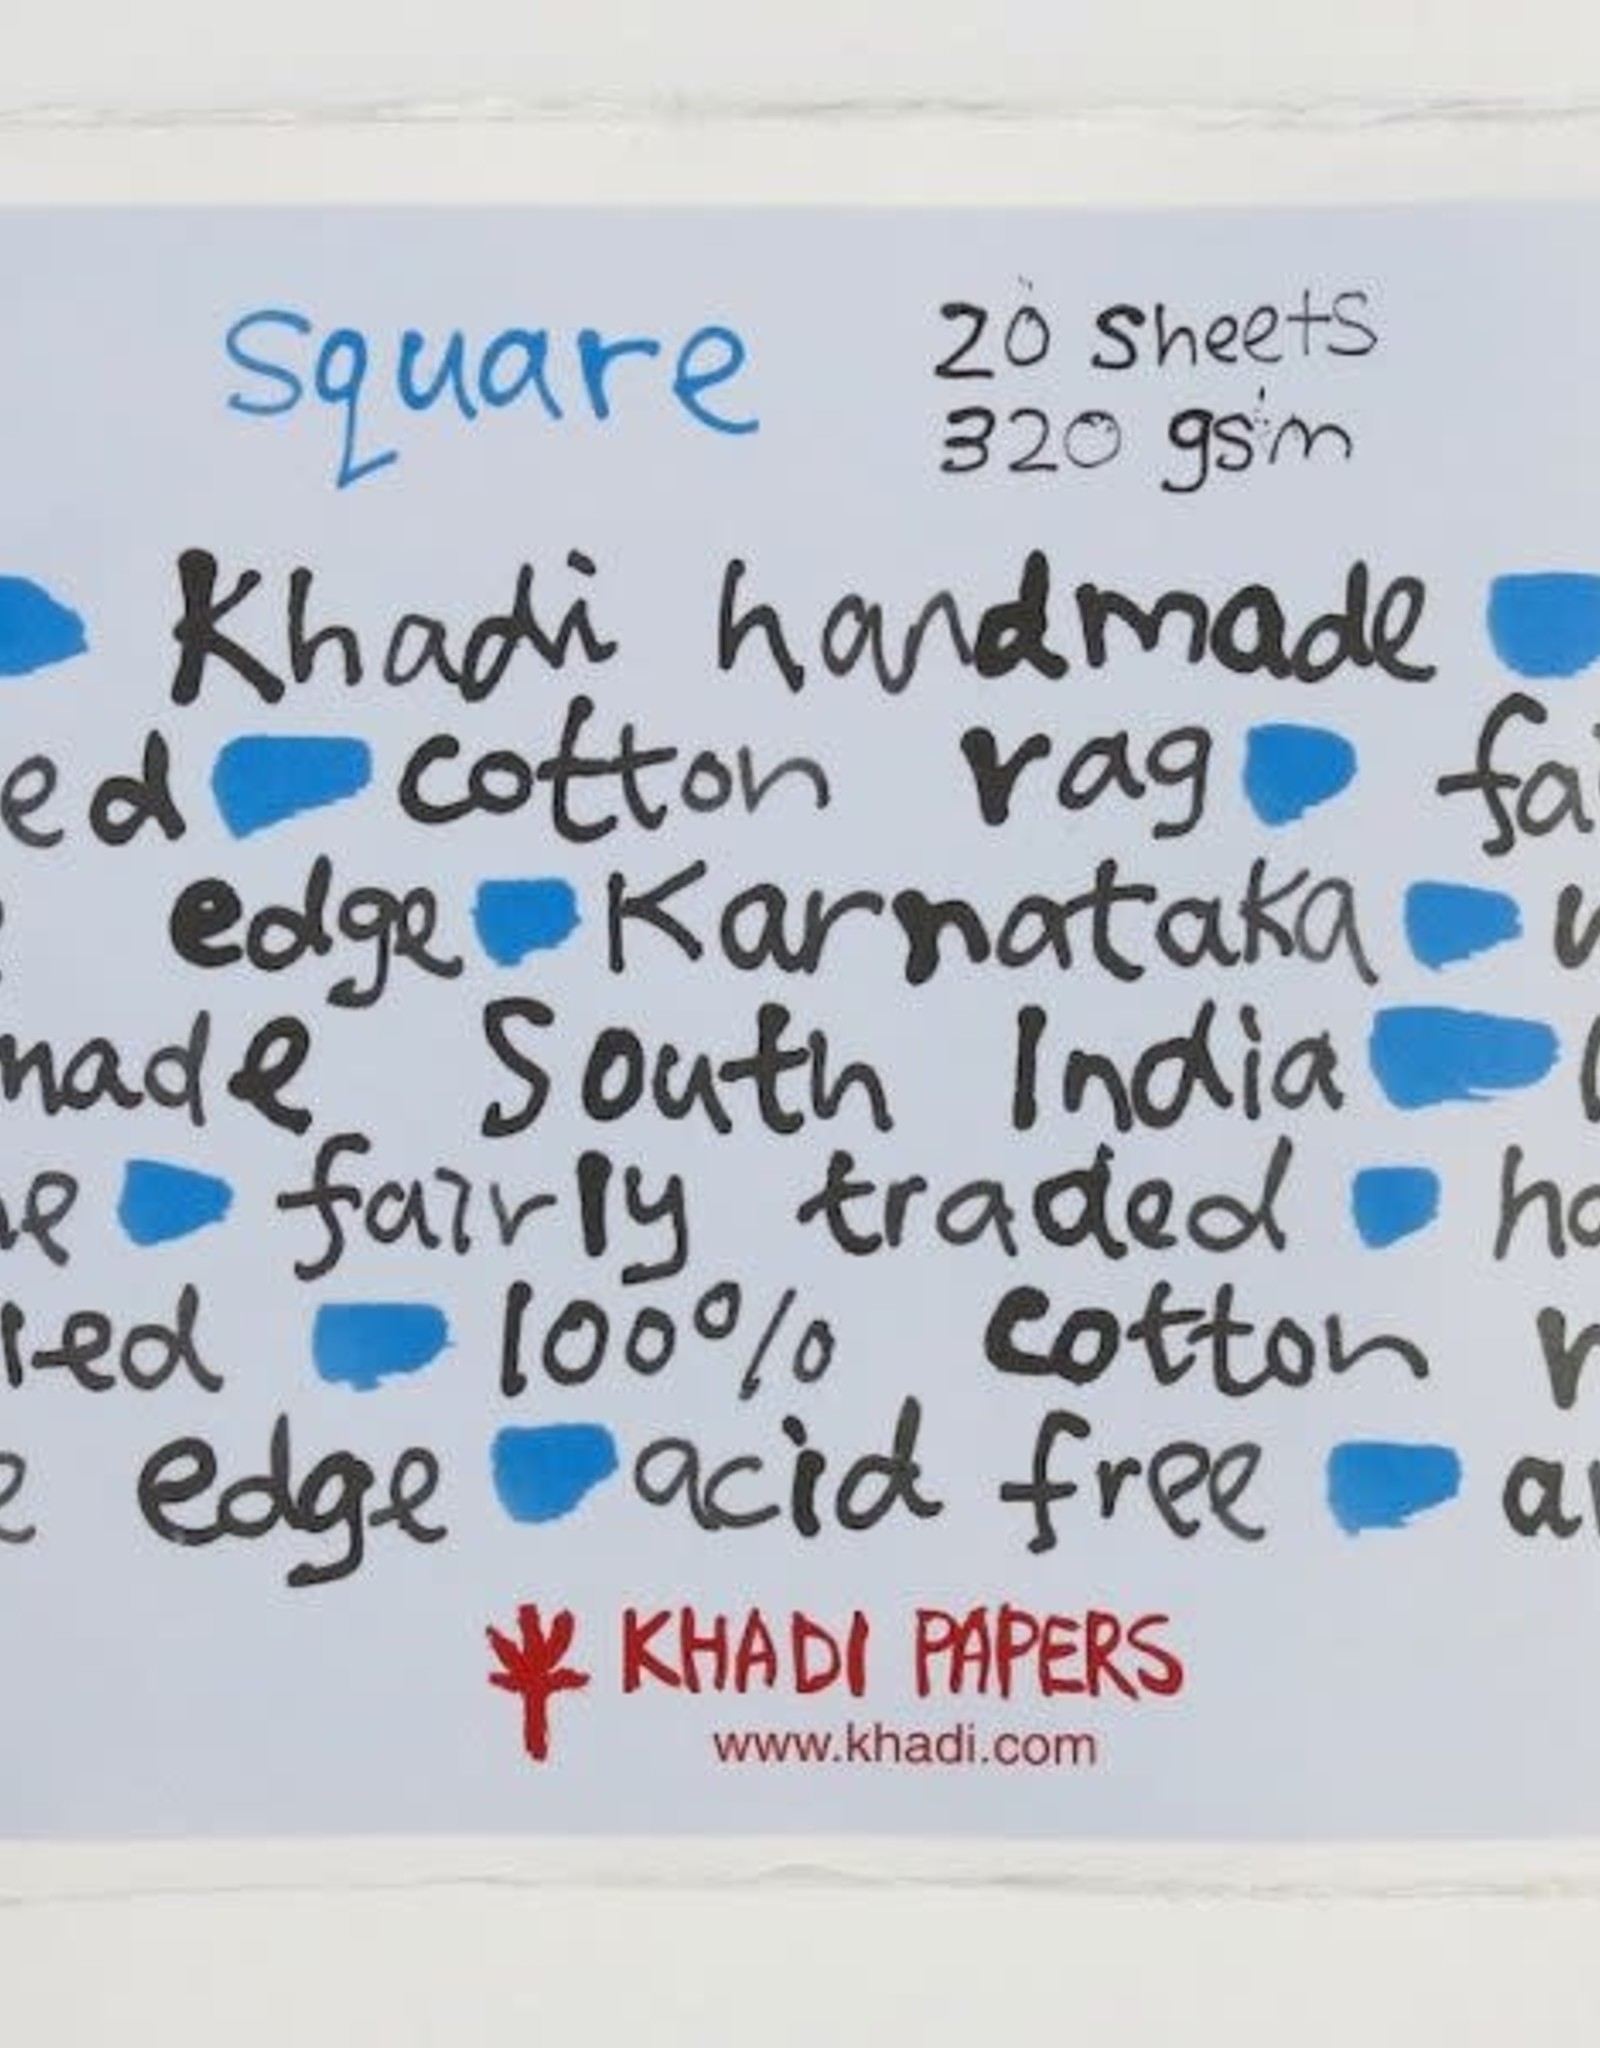 square
20 sheets
320 gsm
Khadi handmade
ed cotton rag fai
edge Karnataka
made South India
fairly traded
100% cotton
edge acid free
KHADI PAPERS
www.khadi.com